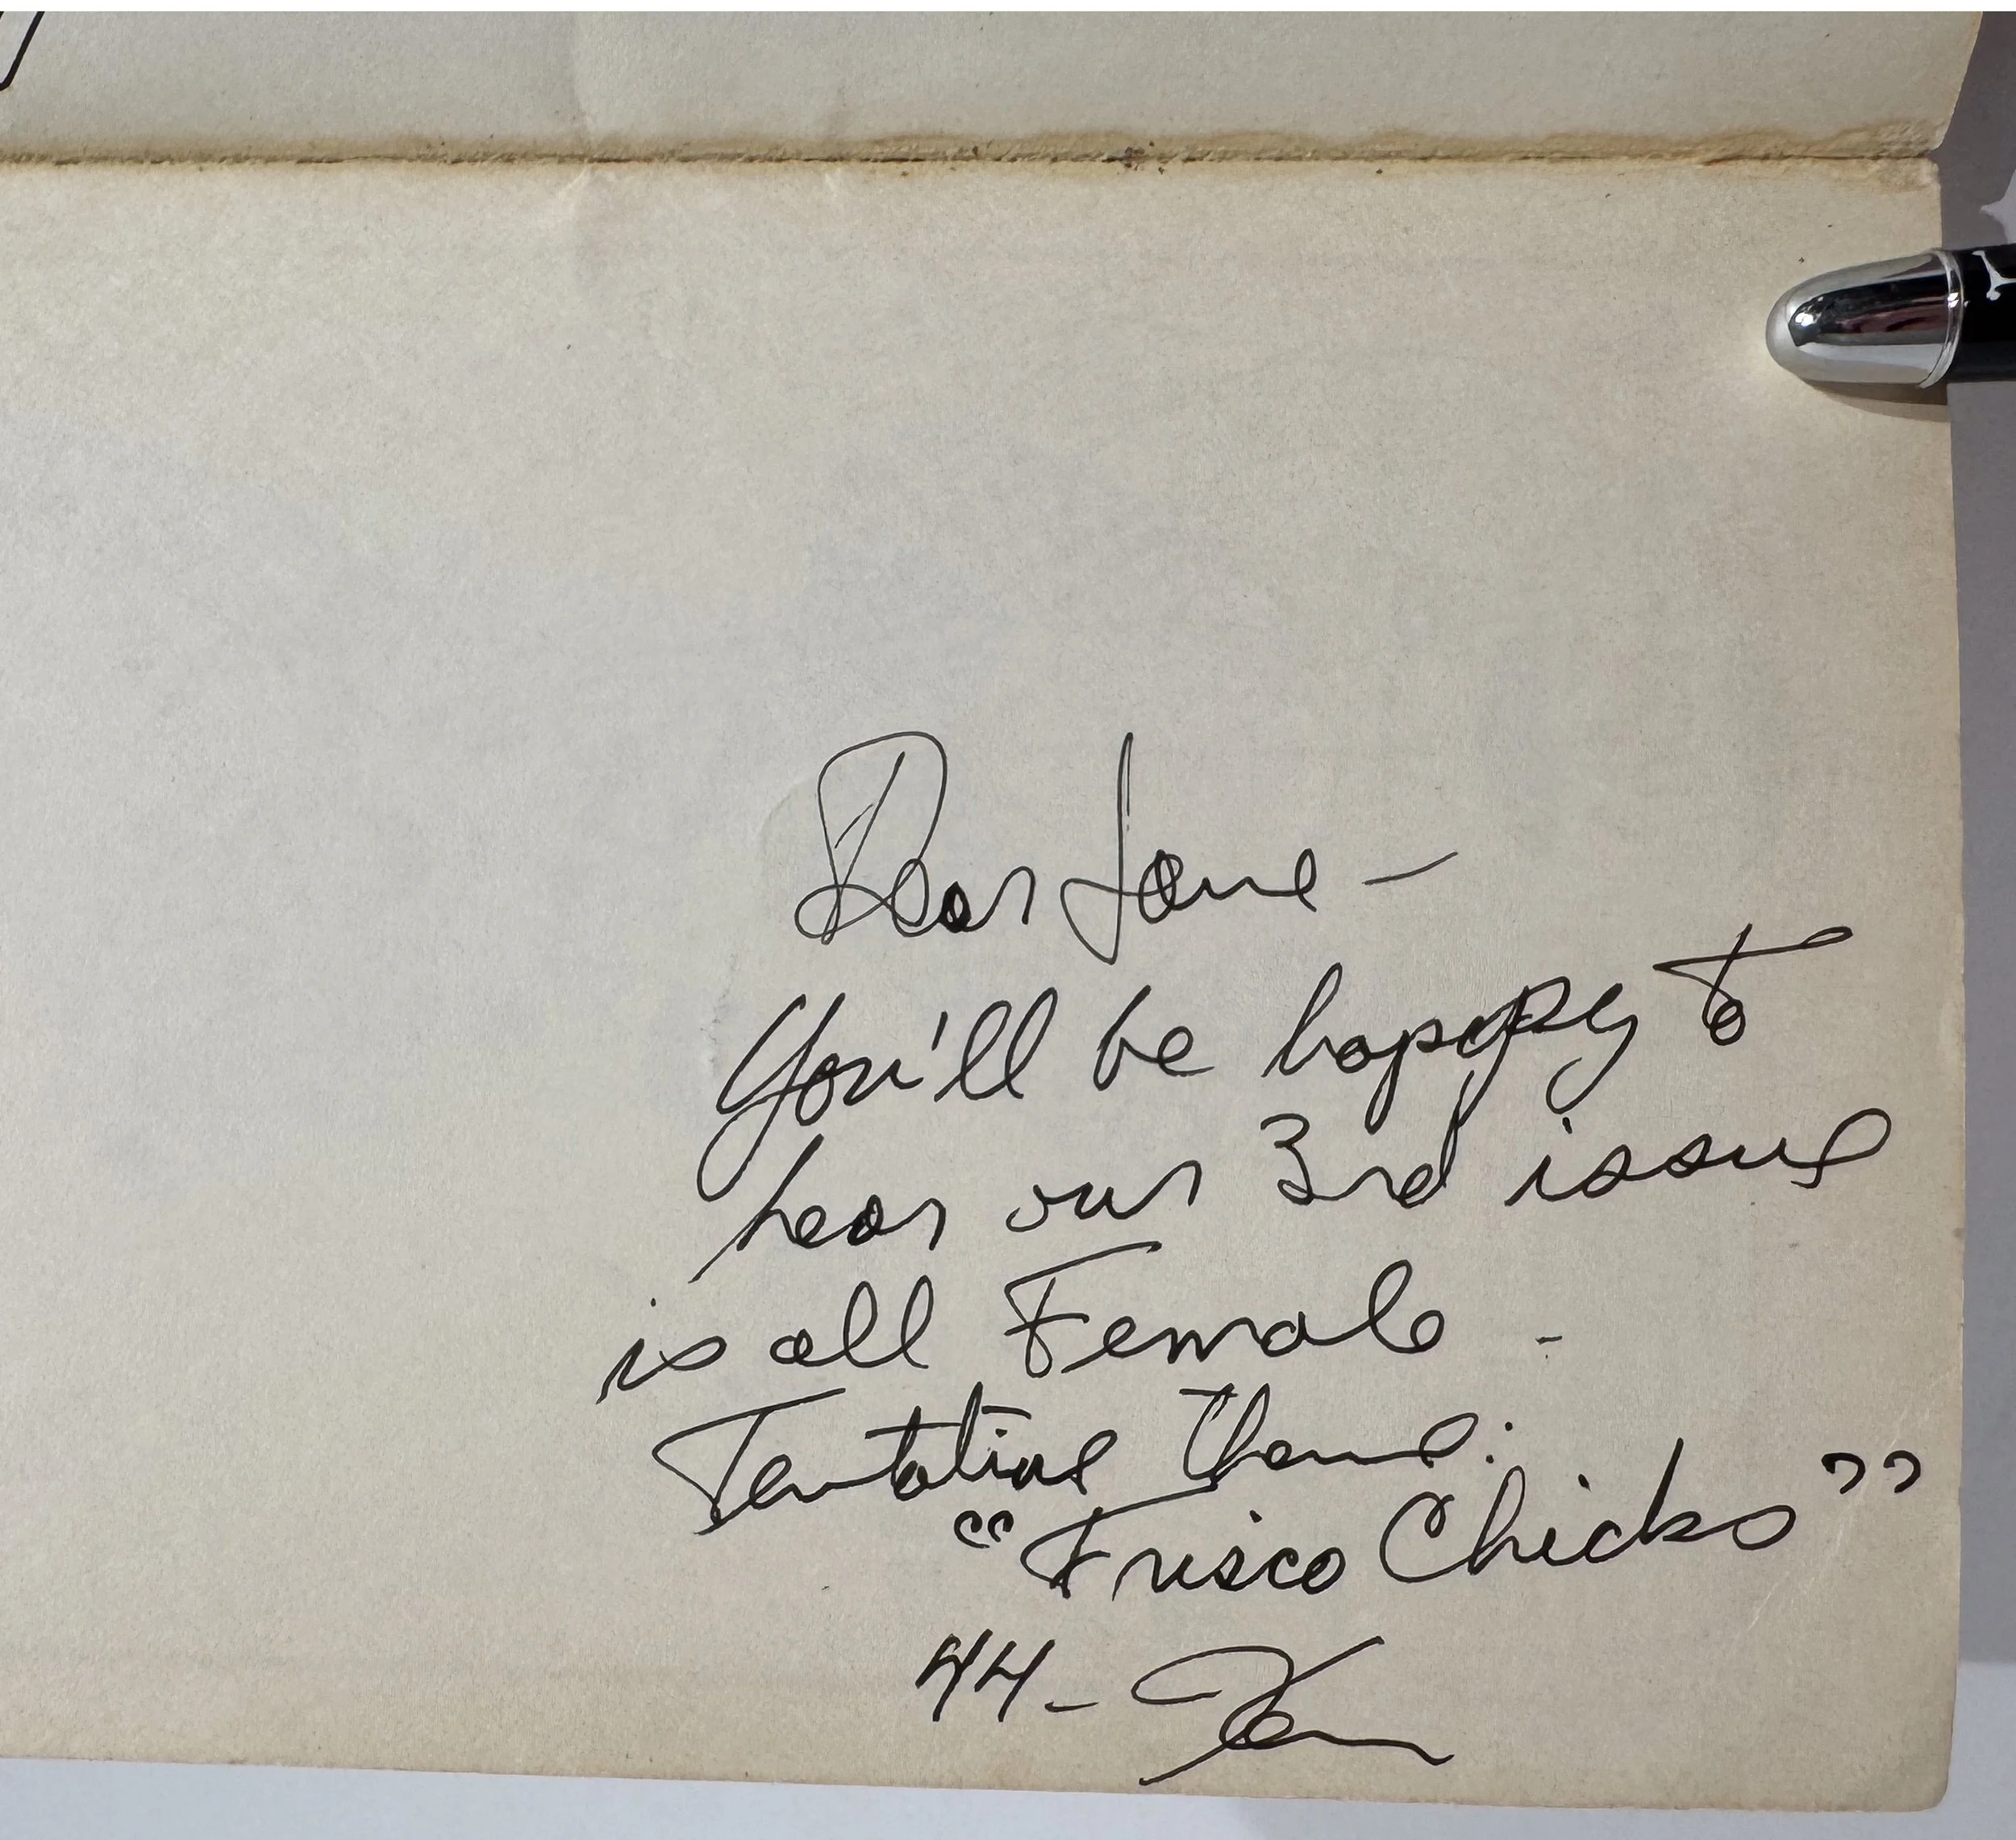 Dear Jane –
You'll be happy to
hear our 3rd issue
is all Female -
Tentative theme:
"Frisco Chicks"